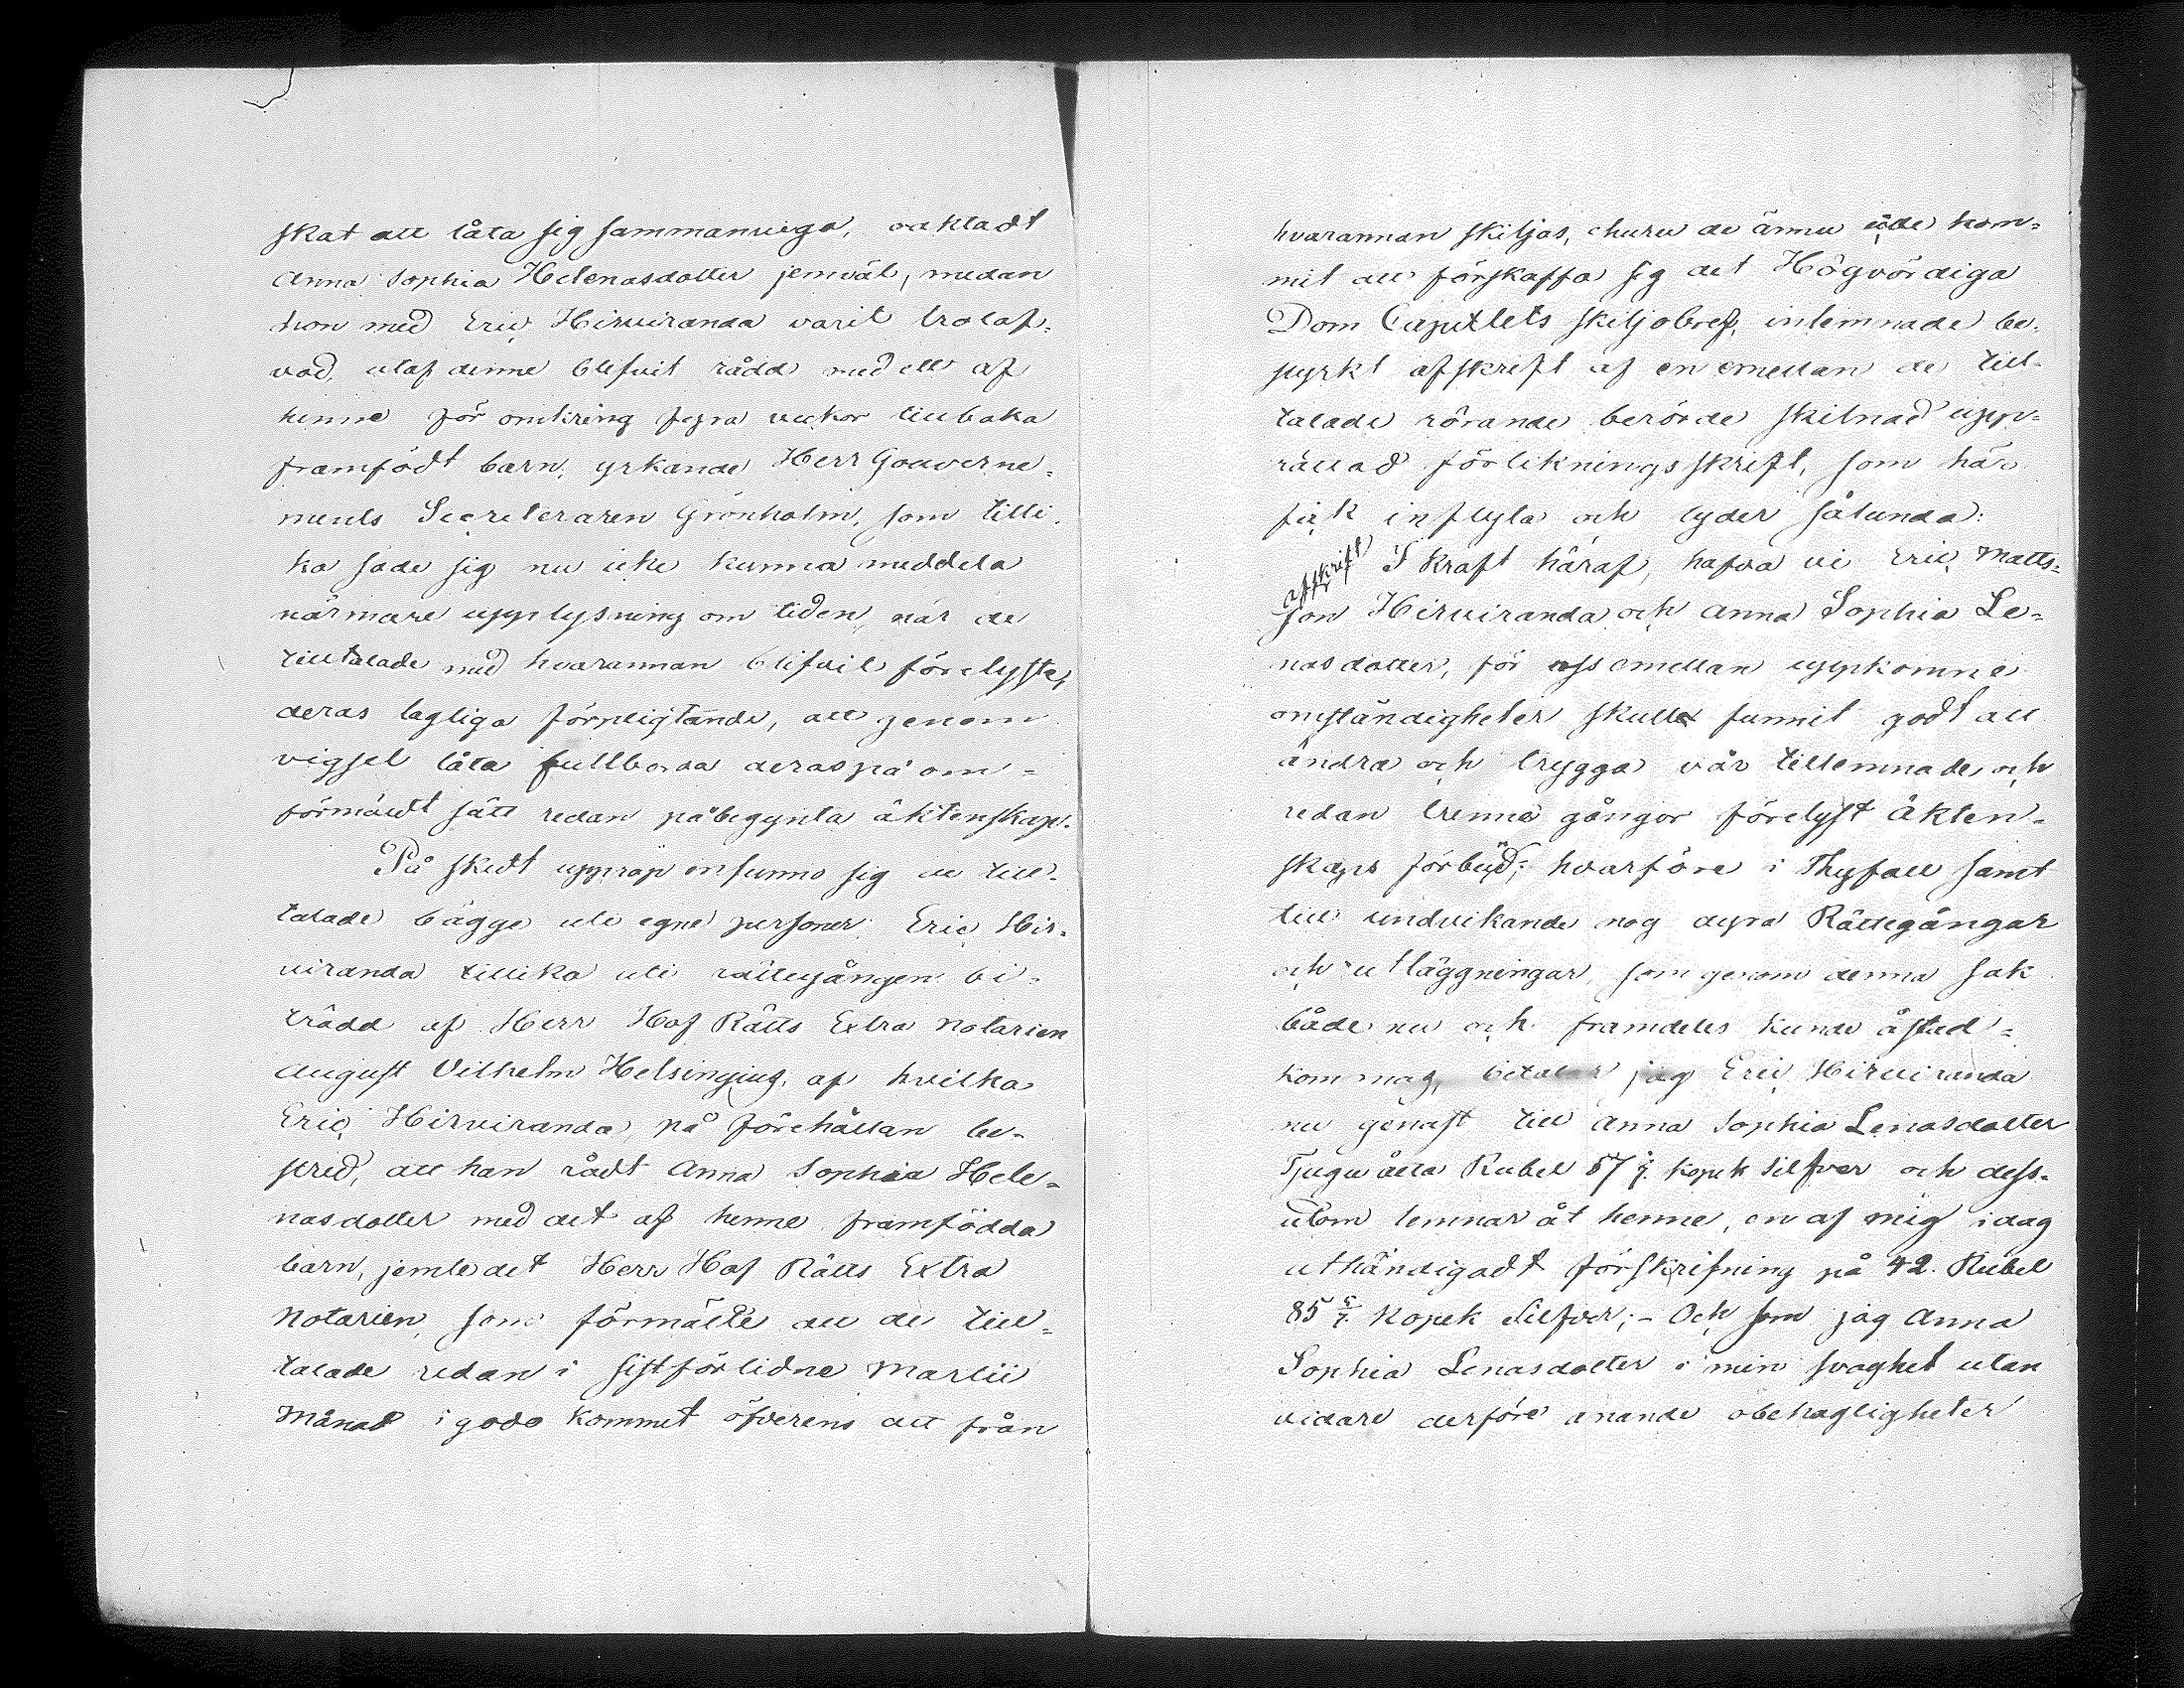 skat att låta sig sammanviga, oaktadt
Anna Sophia Helenasdotter jemväl, medan
hon med Eric Hirviranda varit trolof-
vad, utaf denne blifvit rådd med ett af
henne för omkring fyra veckor tillbaka
framfödt barn, yrkande Herr Gouverne-
ments Secreteraren Grönholm, som tilli-
ka sade sig nu icke kunna meddela
närmare upplysning om tiden, när de
tilltalade med hvarannan blifvit förelyste,
deras lagliga förpligtande, att genom
vigsel låta fullborda deras på om-
förmäldt sätt redan påbegynta äktenskap.
På skedt upprop infunno sig de till-
talade bägge uti egne personer Eric Hir-
viranda tillika uti rättegången bi-
trädd af Herr Hof Rätts Extra Notarien
August Vilhelm Helsingius, af hvilka
Eric Hirviranda, på förehållan be-
stred, att han rådt Anna Sophia Hele-
nasdotter med det af henne framfödda
barn, jemte det Herr Hof Rätts Extra
Notarien, som förmälte att de till-
talade redan i sistförlidne Martii
Månad i godo kommit öfverens att från
hvarannan skiljas, ehuru de ännu icke kom-
mit att förskaffa sig det Högvördiga
Dom Capitlets skiljobref, inlemnade be-
styrkt afskrift af en emellan de till-
talade rörande berörde skilnad upp-
rättad förlikningsskrift, som här
fick inflyta och lyder sålunda:
afskrift I kraft häraf, hafva vi Eric Matts-
son Hirviranda och Anna Sophia Le-
nasdotter, för oss emellan uppkomne
omständigheter skull funnit godt att
ändra och brygga vår tillemnade, och
redan trenne gångor förelyst äkten-
skaps förbud; hvarföre i Thyfall samt
till undvikande nog dyra Rättegångar
och utläggningar, som genom denna sak
både nu och framdeles kunde åstad-
kommas, betalar jag Eric Hirviranda
nu genast till Anna Sophia Lenasdotter
Tjugu åtta Rubel 57 1/7. kopek Silfver och dess-
utom lemnar åt henne, en af mig i dag
uthändigadt förskrifning på 42. Rubel
85 5/7. kopek Silfver; - Och som jag Anna
Sophia Lenasdotter i min svaghet utan
vidare derföre anande obehagligheter